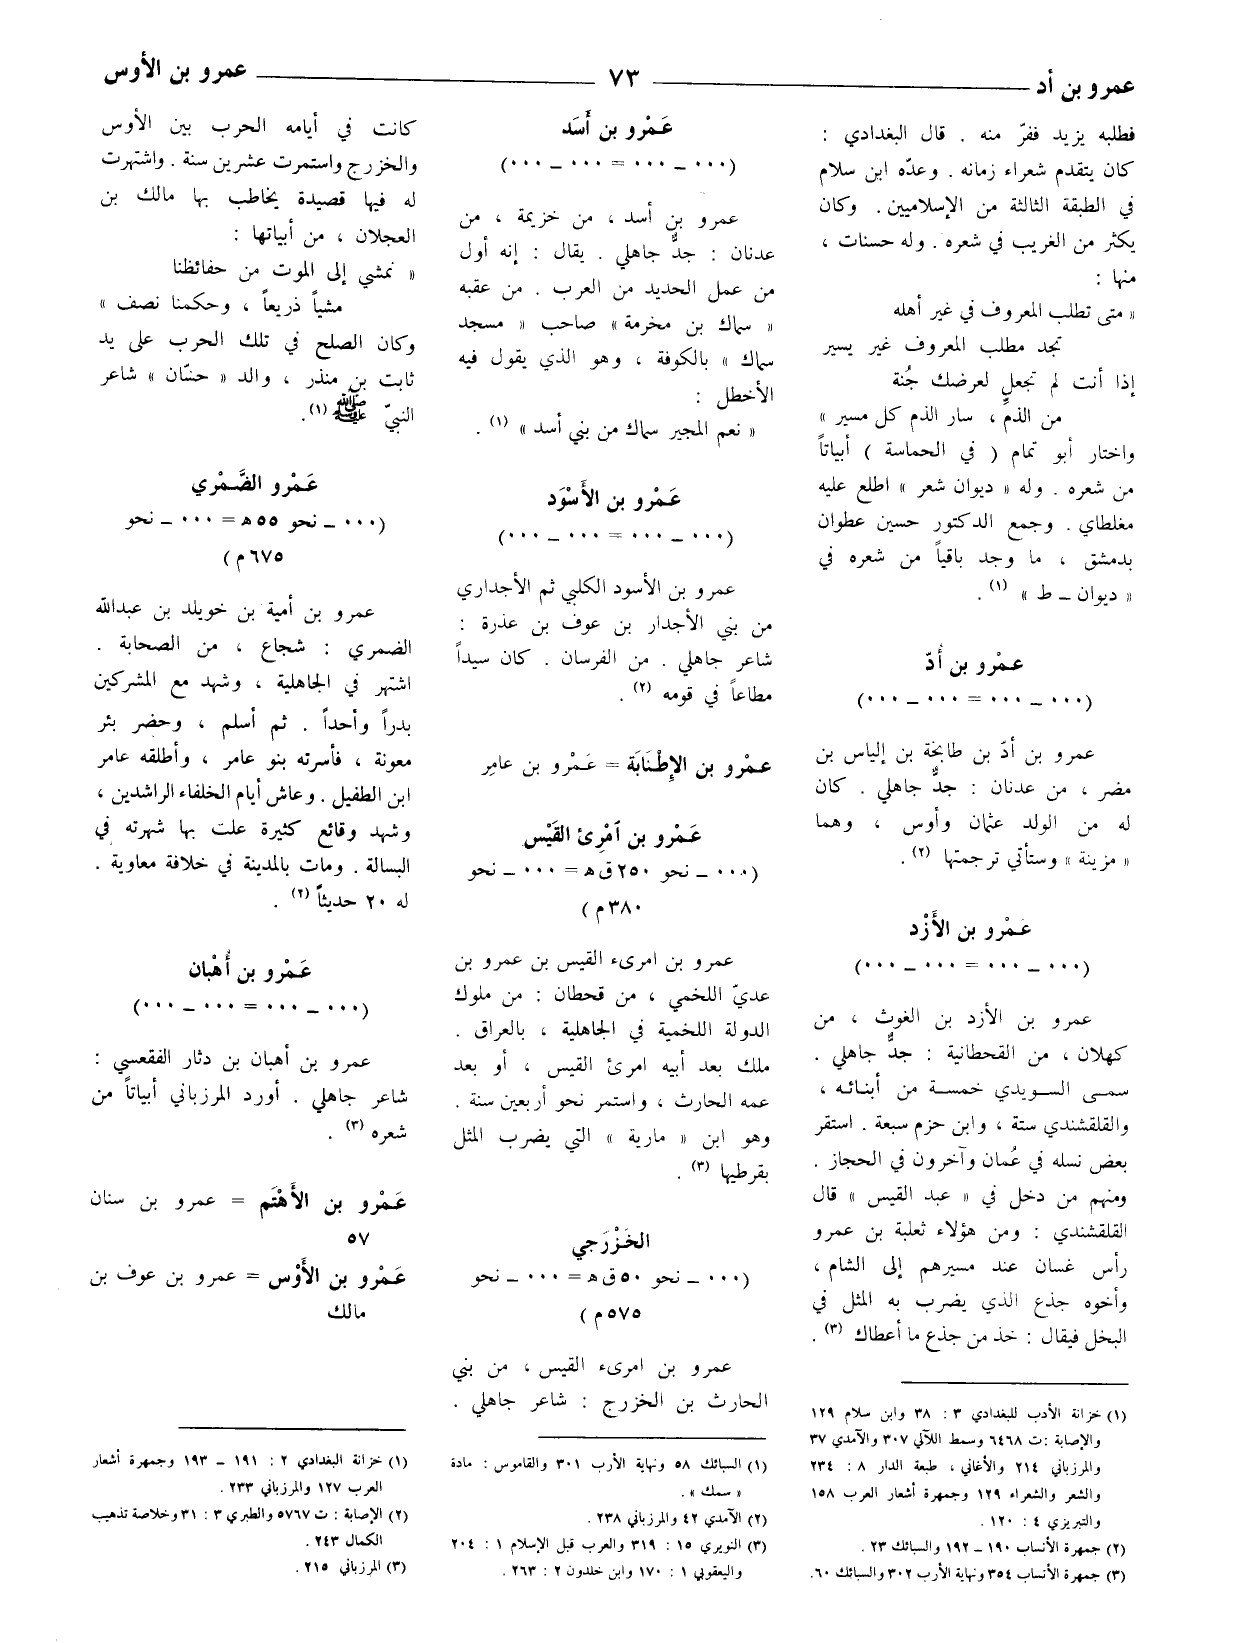 عمرو بن أد ــــــ ٧٣ ــــــ عمرو بن الأوس
فطلبه يزيد ففرّ منه . قال البغدادي :
كان يتقدم شعراء زمانه . وعدّه ابن سلام
في الطبقة الثالثة من الإسلاميين . وكان
يكثر من الغريب في شعره . وله حسنات ،
منها :
« متى تطلب المعروف في غير أهله
تجد مطلب المعروف غير يسير
إذا أنت لم تجعل لعرضك جُنة
من الذمّ ، سار الذم كل مسير »
واختار أبو تمام ( في الحماسة ) أبياتاً
من شعره . وله « ديوان شعر » اطلع عليه
مغلطاي . وجمع الدكتور حسين عطوان
بدمشق ، ما وجد باقياً من شعره في
« ديوان ـ ط » (١) .
عمْرو بن أُدّ
(٠٠٠ ـ ٠٠٠ = ٠٠٠ ـ ٠٠٠)
عمرو بن أدّ بن طابخة بن إلياس بن
مضر ، من عدنان : جدٌّ جاهلي . كان
له من الولد عثمان وأوس ، وهما
« مزينة » وستأتي ترجمتها (٢) .
عَمْرو بن الأَزْد
(٠٠٠ ـ ٠٠٠ = ٠٠٠ ـ ٠٠٠)
عمرو بن الأزد بن الغوث ، من
كهلان ، من القحطانية : جدٌّ جاهلي .
سمى السويدي خمسة من أبنائه ،
والقلقشندي ستة ، وابن حزم سبعة . استقر
بعض نسله في عُمان وآخرون في الحجاز .
ومنهم من دخل في « عبد القيس » قال
القلقشندي : ومن هؤلاء ثعلبة بن عمرو
رأس غسان عند مسيرهم إلى الشام ،
وأخوه جذع الذي يضرب به المثل في
البخل فيقال : خذ من جذع ما أعطاك (٣) .
(١) خزانة الأدب للبغدادي ٣ : ٣٨ وابن سلام ١٢٩
والإصابة : ت ٦٤٦٨ وسمط اللآلي ٣٠٧ والآمدي ٣٧
والمرزباني ٢١٤ والأغاني ، طبعة الدار ٨ : ٢٣٤
والشعر والشعراء ١٢٩ وجمهرة أشعار العرب ١٥٨
والتبريزي ٤ : ١٢٠ .
(٢) جمهرة الأنساب ١٩٠ ـ ١٩٢ والسبائك ٢٣ .
(٣) جمهرة الأنساب ٣٥٤ ونهاية الأرب ٣٠٢ والسبائك ٦٠.
عَمْرو بن أَسَد
(٠٠٠ ـ ٠٠٠ = ٠٠٠ ـ ٠٠٠)
عمرو بن أسد ، من خزيمة ، من
عدنان : جدٌّ جاهلي . يقال : إنه أول
من عمل الحديد من العرب . من عقبه
« سماك بن مخرمة » صاحب « مسجد
سماك » بالكوفة ، وهو الذي يقول فيه
الأخطل :
« نعم المجير سماك من بني أسد » (١) .
عَمْرو بن الأَسْوَد
(٠٠٠ ـ ٠٠٠ = ٠٠٠ ـ ٠٠٠)
عمرو بن الأسود الكلبي ثم الأجداري
من بني الأجدار بن عوف بن عذرة :
شاعر جاهلي . من الفرسان . كان سيداً
مطاعاً في قومه (٢) .
عمْرو بن الإطْنَابَة = عَمْرو بن عامِر
عَمْرو بن آمْرِئ القَيْس
(٠٠٠ ـ نحو ٢٥٠ ق ھ = ٠٠٠ ـ نحو
٣٨٠ م )
عمرو بن امرىء القيس بن عمرو بن
عديّ اللخمي ، من قحطان : من ملوك
الدولة اللخمية في الجاهلية ، بالعراق .
ملك بعد أبيه امرئ القيس ، أو بعد
عمه الحارث ، واستمر نحو أربعين سنة .
وهو ابن « مارية » التي يضرب المثل
بقرطيها (٣) .
الخَزْرَجي
(٠٠٠ ـ نحو ٥٠ ق ھ = ٠٠٠ ـ نحو
٥٧٥ م )
عمرو بن امرىء القيس ، من بني
الحارث بن الخزرج : شاعر جاهلي .
(١) السبائك ٥٨ ونهاية الأرب ٣٠١ والقاموس : مادة
« سمك » .
(٢) الآمدي ٤٢ والمرزباني ٢٣٨ .
(٣) النويري ١٥ : ٣١٩ والعرب قبل الإسلام ١ : ٢٠٤
واليعقوبي ١ : ١٧٠ وابن خلدون ٢ : ٢٦٣ .
كانت في أيامه الحرب بين الأوس
والخزرج واستمرت عشرين سنة . واشتهرت
له فيها قصيدة يخاطب بها مالك بن
العجلان ، من أبياتها :
« نمشي إلى الموت من حفائظنا
مشياً ذريعاً ، وحكمنا نصف »
وكان الصلح في تلك الحرب على يد
ثابت بن منذر ، والد « حسّان » شاعر
النبيّ ﷺ (١) .
عَمْرو الضَّمْري
(٠٠٠ ـ نحو ٥٥ ھ = ٠٠٠ ـ نحو
٦٧٥ م )
عمرو بن أمية بن خويلد بن عبدالله
الضمري : شجاع ، من الصحابة .
اشتهر في الجاهلية ، وشهد مع المشركين
بدراً وأحداً . ثم أسلم ، وحضر بئر
معونة ، فأسرته بنو عامر ، وأطلقه عامر
ابن الطفيل . وعاش أيام الخلفاء الراشدين ،
وشهد وقائع كثيرة علت بها شهرته في
البسالة . ومات بالمدينة في خلافة معاوية .
له ٢٠ حديثاً (٢) .
عَمْرو بن أُهْبان
(٠٠٠ ـ ٠٠٠ = ٠٠٠ ـ ٠٠٠)
عمرو بن أهبان بن دثار الفقعسي :
شاعر جاهلي . أورد المرزباني أبياتاً من
شعره (٣) .
عَمْرو بن الأَهْتَم = عمرو بن سنان
٥٧
عَمْرو بن الأَوْس = عمرو بن عوف بن
مالك
(١) خزانة البغدادي ٢ : ١٩١ ـ ١٩٣ وجمهرة أشعار
العرب ١٢٧ والمرزباني ٢٣٣ .
(٢) الإصابة : ت ٥٧٦٧ والطبري ٣ : ٣١ وخلاصة تذهيب
الكمال ٢٤٣ .
(٣) المرزباني ٢١٥ .